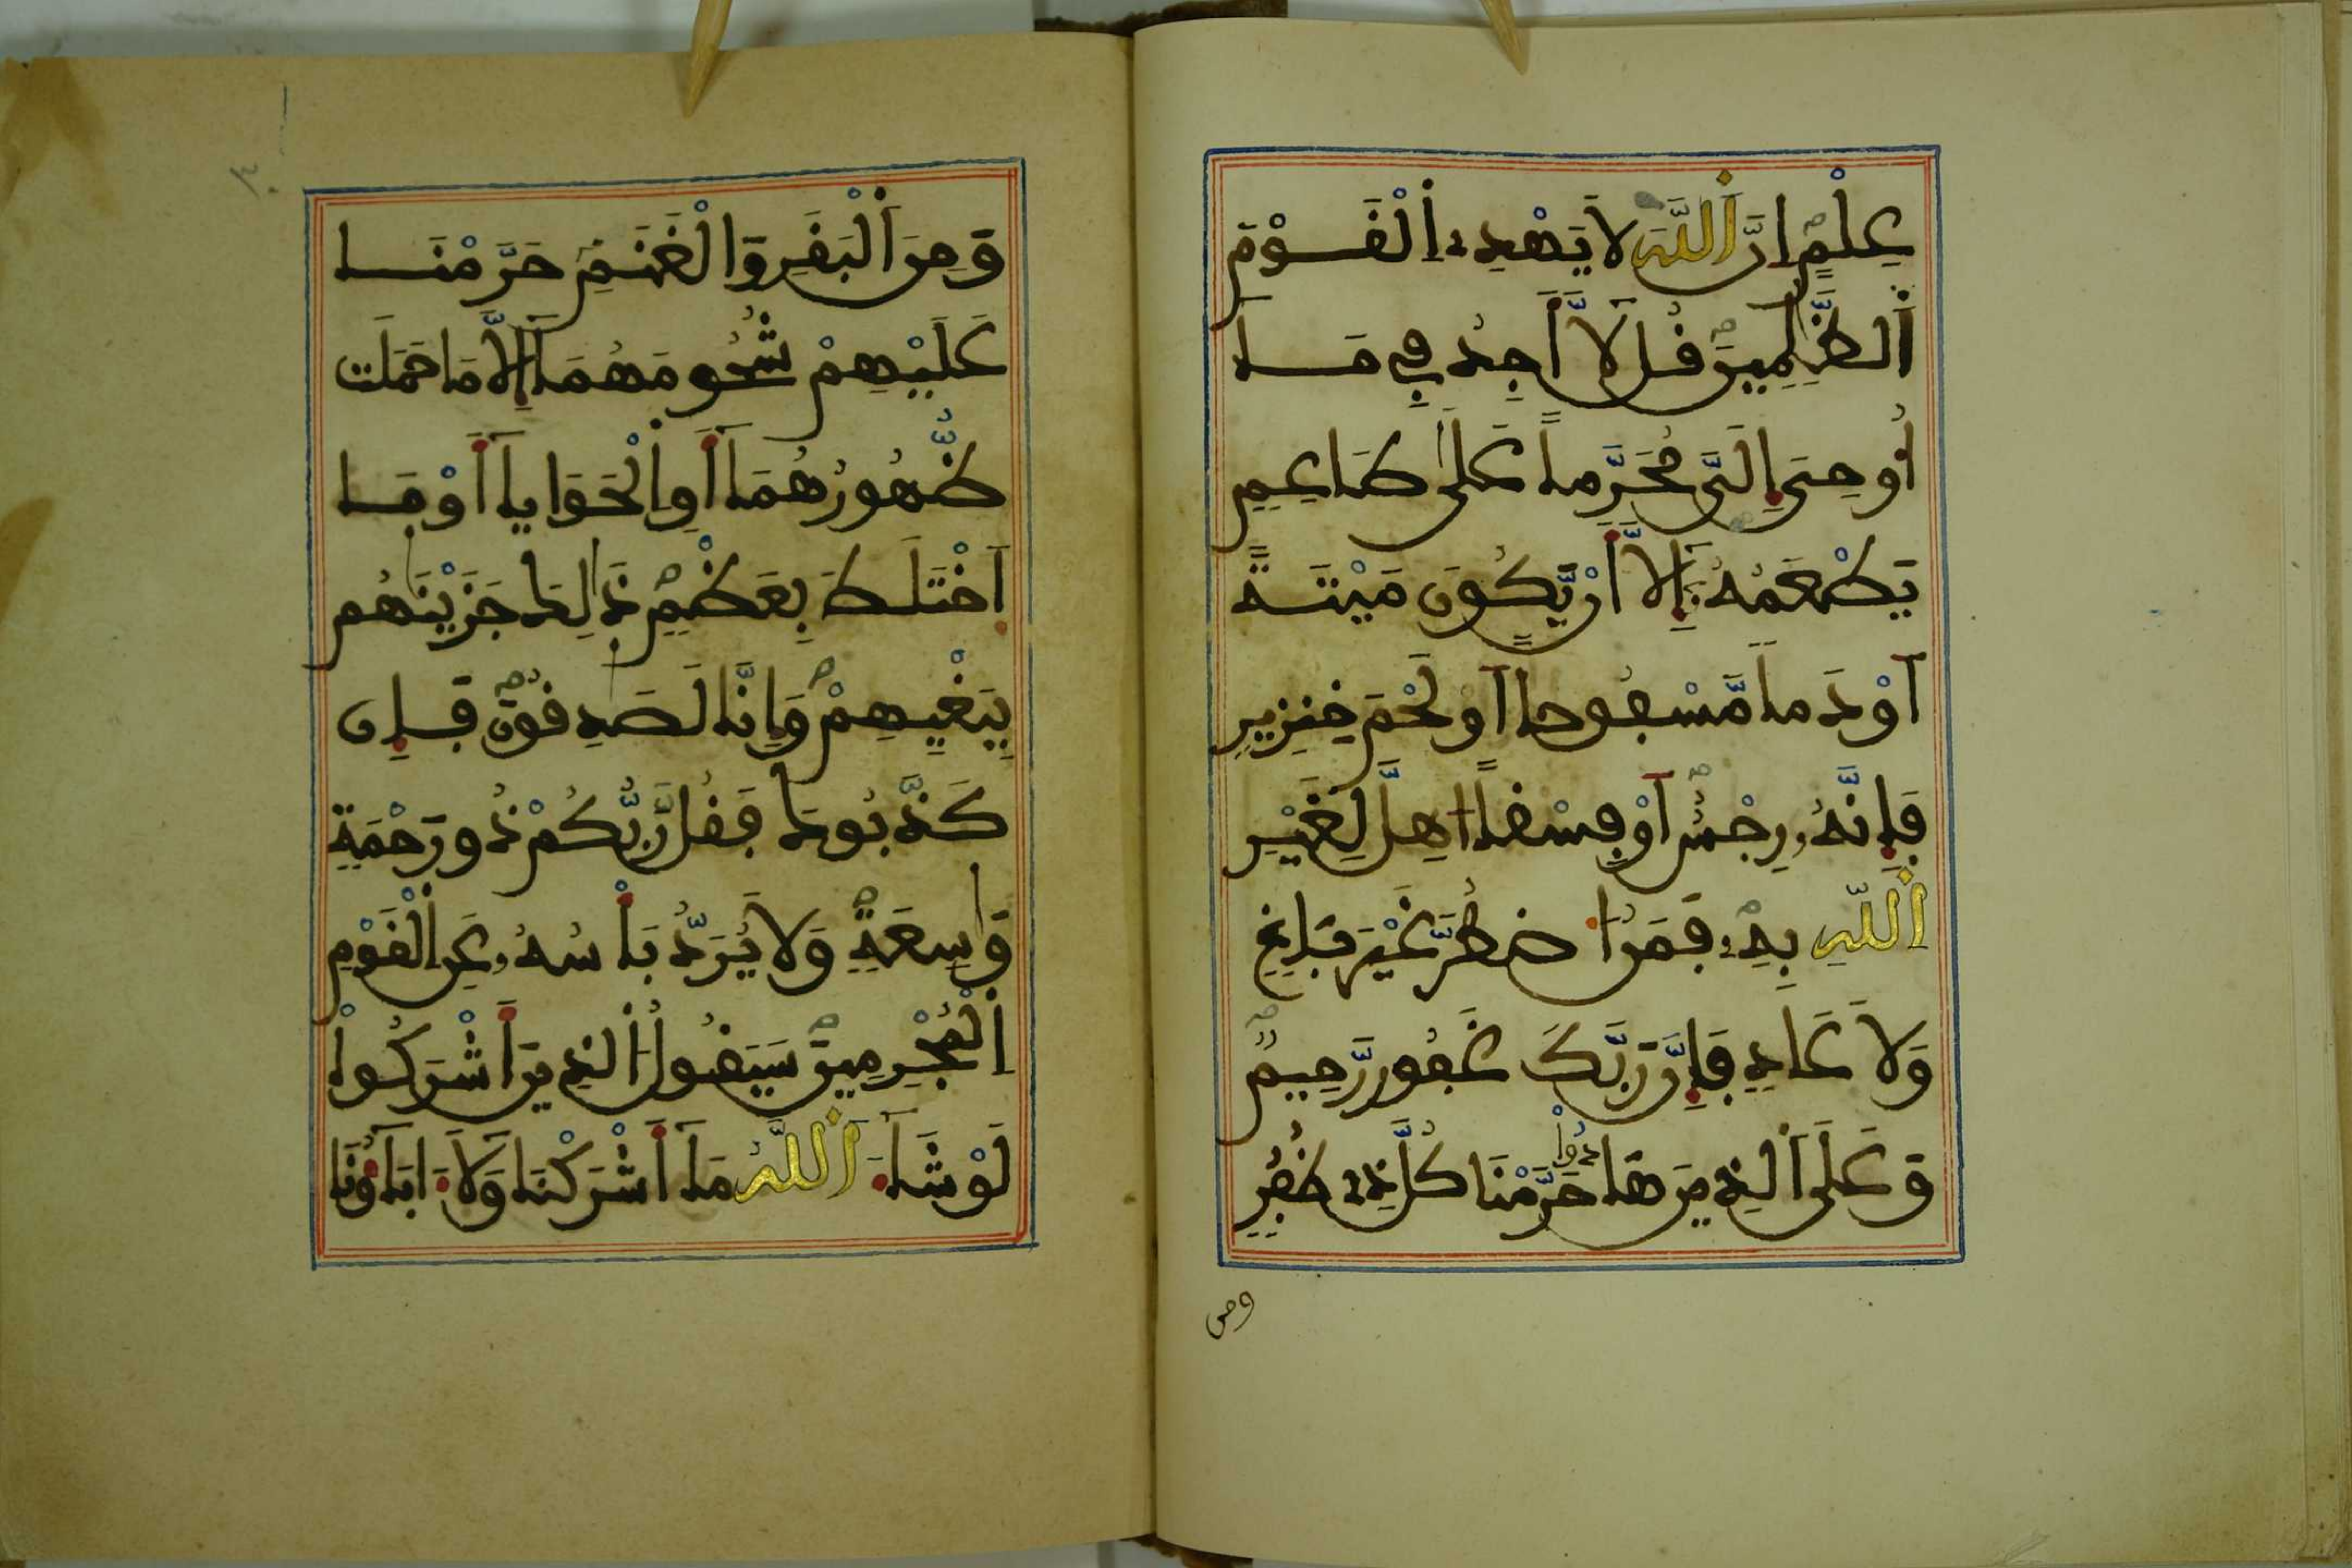 عِلْمٍ اِنَّ اَ۬للَّهَ لَا يَهْدِے اِ۬لْقَوْمَ
اَ۬لظَّٰلِمِينَ قُل لَّا أَجِدُ فِي مَا
أُوحِيَ إِلَيَّ مُحَرَّماً عَلَىٰ طَاعِمٍ
يَطْعَمُهُ إِلَّا أَنْ يَّكُونَ مَيْتَةً
اَوْ دَماً مَّسْفُوحاً اَوْ لَحْمَ خِنزِيرٍ
فَإِنَّهُۥ رِجْسٌ اَوْ فِسْقاً اهِلَّ لِغَيْرِ
اِ۬للَّهِ بِهِۦ فَمَنُ ا۟ضْطُرَّ غَيْرَ بَاغٍ
وَلَا عَادٍ فَإِنَّ رَبَّكَ غَفُورٌ رَّحِيمٌ
وَعَلَى اَ۬لذِينَ هَادُوا حَرَّمْنَا كُلَّ ذِے ظُفُرٍ
ومن
وَمِنَ اَ۬لْبَقَرِ وَالْغَنَمِ حَرَّمْنَا
عَلَيْهِمْ شُحُومَهُمَا إِلَّا مَا حَمَلَت
ظُّهُورُهُمَا أَوِ اِ۬لْحَوَايَا أَوْ مَا
اَ۪خْتَلَطَ بِعَظْمٍ ذَٰلِكَ جَزَيْنَٰهُم
بِبَغْيِهِمْ وَإِنَّا لَصَٰدِقُونَ فَإِن
كَذَّبُوكَ فَقُل رَّبُّكُمْ ذُو رَحْمَةٍ
وَٰسِعَةٍ وَلَا يُرَدُّ بَأْسُهُۥ عَنِ اِ۬لْقَوْمِ
اِ۬لْمُجْرِمِينَ سَيَقُولُ اُ۬لذِينَ أَشْرَكُواْ
لَوْ شَآءَ اَ۬للَّهُ مَا أَشْرَكْنَا وَلَا ءَابَآؤُنَا